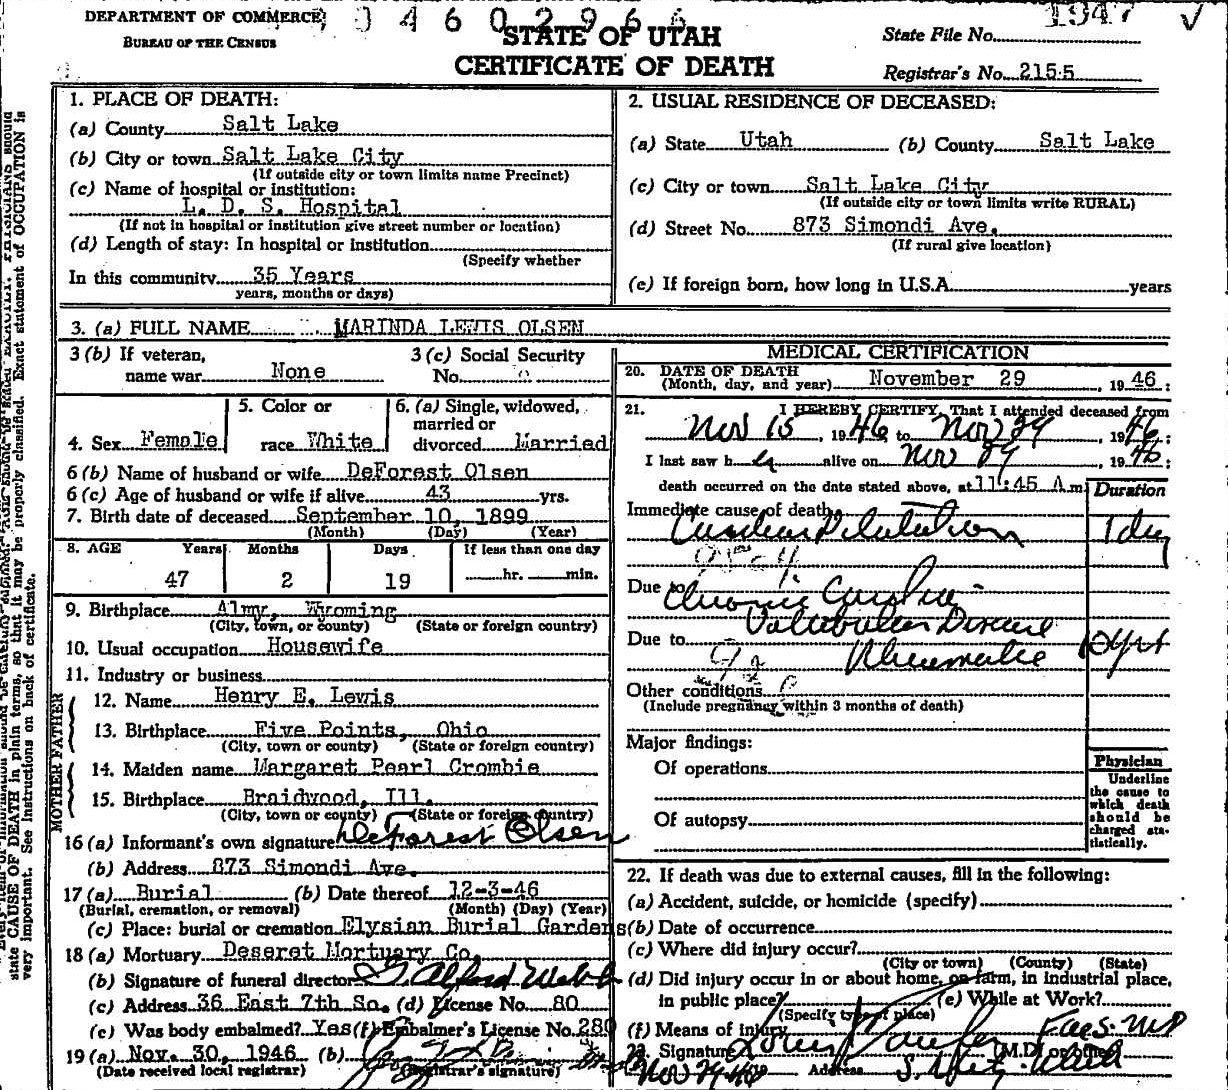 DEPARTMENT OF COMMERCE
BUREAU OF THE CENSUS
3 4 6 0 2 9 6 6
STATE OF UTAH
CERTIFICATE OF DEATH
1947 ✓
State File No.
Registrar's No. 2155
1. PLACE OF DEATH:
(a) County Salt Lake
(b) City or town Salt Lake City
(If outside city or town limits name Precinct)
(c) Name of hospital or institution:
L. D. S. Hospital
(If not in hospital or institution give street number or location)
(d) Length of stay: In hospital or institution
(Specify whether
In this community 35 Years
years, months or days)
2. USUAL RESIDENCE OF DECEASED:
(a) State Utah (b) County Salt Lake
(c) City or town Salt Lake City
(If outside city or town limits write RURAL)
(d) Street No. 873 Simondi Ave.
(If rural give location)
(e) If foreign born, how long in U.S.A. years
3. (a) FULL NAME MARINDA LEWIS OLSEN
3 (b) If veteran, name war None
3 (c) Social Security No.
4. Sex Female
5. Color or race White
6. (a) Single, widowed, married or divorced Married
6 (b) Name of husband or wife DeForest Olsen
6 (c) Age of husband or wife if alive 43 yrs.
7. Birth date of deceased September 10, 1899
(Month) (Day) (Year)
8. AGE Years Months Days If less than one day
47 2 19 hr. min.
9. Birthplace Almy, Wyoming
(City, town, or county) (State or foreign country)
10. Usual occupation Housewife
11. Industry or business
FATHER
12. Name Henry E. Lewis
13. Birthplace Five Points, Ohio
(City, town or county) (State or foreign country)
MOTHER
14. Maiden name Margaret Pearl Crombie
15. Birthplace Braidwood, Ill.
(City, town or county) (State or foreign country)
16 (a) Informant's own signature DeForest Olsen
(b) Address 873 Simondi Ave.
17 (a) Burial (b) Date thereof 12-3-46
(Burial, cremation, or removal) (Month) (Day) (Year)
(c) Place: burial or cremation Elysian Burial Gardens
18 (a) Mortuary Deseret Mortuary Co.
(b) Signature of funeral director G. Alford Webb
(c) Address 36 East 7th So. (d) License No. 80
(e) Was body embalmed? Yes (f) Embalmer's License No. 280
19 (a) Nov. 30, 1946 (b)
(Date received local registrar) (Registrar's signature)
MEDICAL CERTIFICATION
20. DATE OF DEATH
(Month, day, and year) November 29, 1946:
21. I HEREBY CERTIFY, That I attended deceased from
Nov 15, 1946 to Nov 29, 1946:
I last saw her alive on Nov 29, 1946:
death occurred on the date stated above, at 11:45 A.m.
Duration
Immediate cause of death
Cardiac Dilatation 1 day
Due to Chronic Cardiac
Valvular Disease
Due to Rheumatic 10 yrs
Other conditions
(Include pregnancy within 3 months of death)
Major findings:
Of operations
Of autopsy
Physician
Underline the cause to which death should be charged statistically.
22. If death was due to external causes, fill in the following:
(a) Accident, suicide, or homicide (specify)
(b) Date of occurrence
(c) Where did injury occur?
(City or town) (County) (State)
(d) Did injury occur in or about home, on farm, in industrial place, in public place?
(Specify type of place)
(e) While at Work?
(f) Means of injury
23. Signature (M.D. or other)
Address
state CAUSE OF DEATH in plain terms, so that it may be properly classified. Exact statement of OCCUPATION is
very important. See instructions on back of certificate.